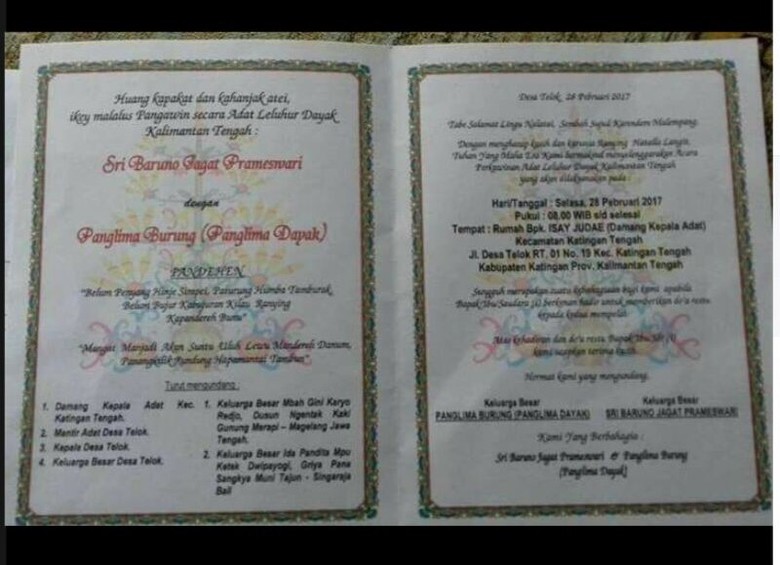 Huang kapakat dan kahanjak atei,
ikey malalus Pangawin secara Adat Leluhur Dayak
Kalimantan Tengah :
Sri Baruno Jagat Prameswari
dengan
Panglima Burung (Panglima Dayak)
PANDEHEN
"Belum Penyang Hinje Simpei, Paturung Humba Tamburak
Belum Bujur Kabujuran Kilau Ranying
Kapandereh Bunu"
"Mangat Manjadi Akan Suntu Uluh Lewu Mandereh Danum,
Panangkilik Rundung Hapamantai Tambun"
Turut mengundang :
1. Damang Kepala Adat Kec. Katingan Tengah.
2. Mantir Adat Desa Telok.
3. Kepala Desa Telok.
4. Keluarga Besar Desa Telok.
1. Keluarga Besar Mbah Gini Karyo
Redjo, Dusun Ngentak Kaki
Gunung Merapi – Magelang Jawa
Tengah.
2. Keluarga Besar Ida Pandita Mpu
Ketek Dwipayogi, Griya Pana
Sangkya Muni Tajun - Singaraja
Bali
Desa Telok, 28 Pebruari 2017
Tabe Salamat Lingu Nalatai, Sembah Sujud Karendem Malempang.
Dengan mengharap kasih dan karunia Ranying Hatalla Langit,
Tuhan Yang Maha Esa Kami bermaksud menyelenggarakan Acara
Perkawinan Adat Leluhur Dayak Kalimantan Tengah
yang akan dilaksanakan pada :
Hari/Tanggal : Selasa, 28 Pebruari 2017
Pukul : 08.00 WIB s/d selesai
Tempat : Rumah Bpk. ISAY JUDAE (Damang Kepala Adat)
Kecamatan Katingan Tengah
Jl. Desa Telok RT. 01 No. 19 Kec. Katingan Tengah
Kabupaten Katingan Prov. Kalimantan Tengah
Sungguh merupakan suatu kebahagiaan bagi kami apabila
Bapak/Ibu/Saudara (i) berkenan hadir untuk memberikan do'a restu
kepada kedua mempelai.
Atas kehadiran dan do'a restu Bapak/Ibu/Sdr (i)
kami ucapkan terima kasih.
Hormat kami yang mengundang.
Keluarga Besar
PANGLIMA BURUNG (PANGLIMA DAYAK)
Keluarga Besar
SRI BARUNO JAGAT PRAMESWARI
Kami Yang Berbahagia :
Sri Baruno Jagat Prameswari & Panglima Burung
(Panglima Dayak)